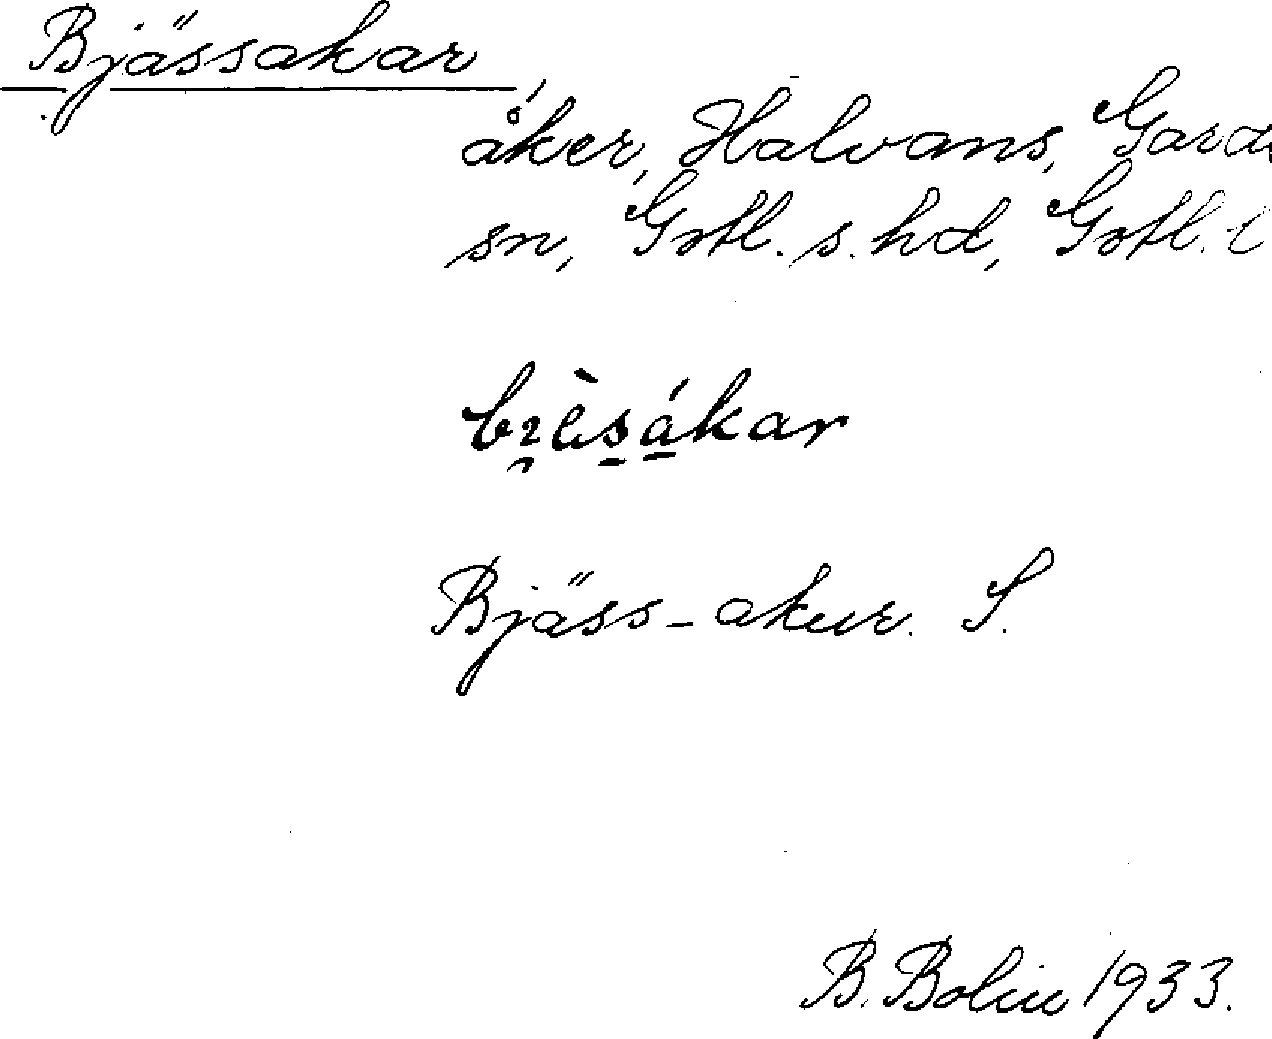 Bjässakar
åker, Halvans, Garde
sn, Gotl. s. hd, Gotl. l
Bjäss-akur. S.
B. Bolin 1933.